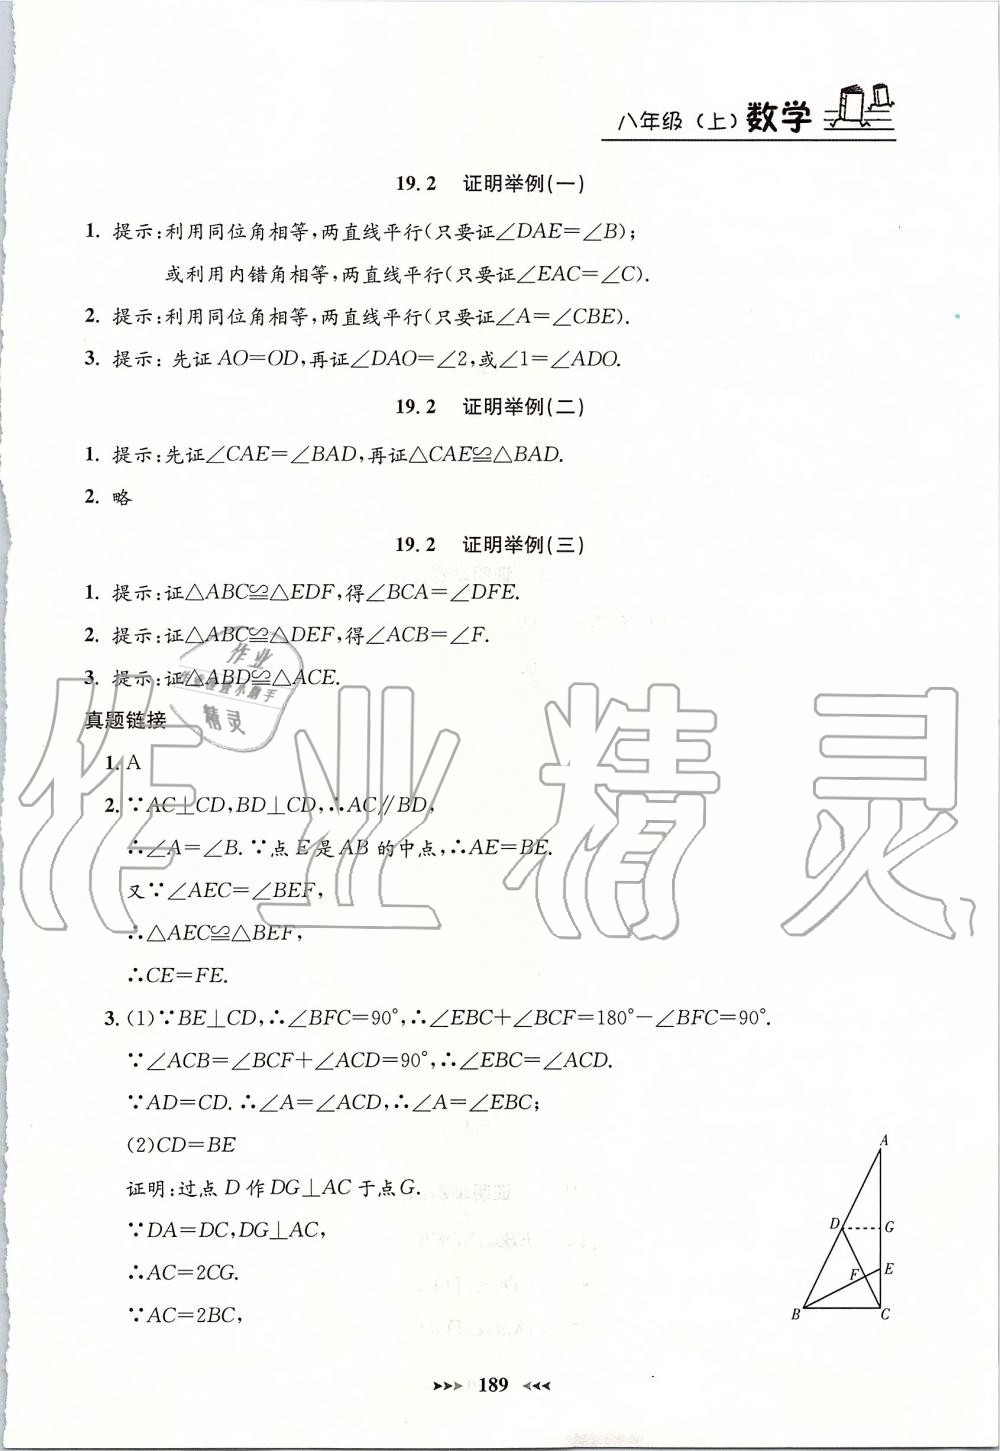 八年级（上）数学
19.2 证明举例(一)
1. 提示:利用同位角相等,两直线平行(只要证∠DAE=∠B);
或利用内错角相等,两直线平行(只要证∠EAC=∠C).
2. 提示:利用同位角相等,两直线平行(只要证∠A=∠CBE).
3. 提示: 先证AO=OD,再证∠DAO=∠2,或∠1=∠ADO.
19.2 证明举例(二)
1. 提示:先证∠CAE=∠BAD,再证△CAE≌△BAD.
2. 略
19.2 证明举例(三)
1. 提示:证△ABC≌△EDF,得∠BCA=∠DFE.
2. 提示:证△ABC≌△DEF,得∠ACB=∠F.
3. 提示:证△ABD≌△ACE.
作业
精灵
真题链接
作业精灵
1. A
2. ∵AC⊥CD,BD⊥CD,∴AC∥BD,
∴∠A=∠B.∵点E是AB的中点,∴AE=BE.
又∵∠AEC=∠BEF,
∴△AEC≌△BEF,
∴CE=FE.
3. (1)∵BE⊥CD,∴∠BFC=90°,∴∠EBC+∠BCF=180°−∠BFC=90°.
∵∠ACB=∠BCF+∠ACD=90°,∴∠EBC=∠ACD.
∵AD=CD.∴∠A=∠ACD,∴∠A=∠EBC;
(2)CD=BE
证明:过点D作DG⊥AC于点G.
∵DA=DC,DG⊥AC,
∴AC=2CG.
∵AC=2BC,
A
D
G
E
F
B
C
189